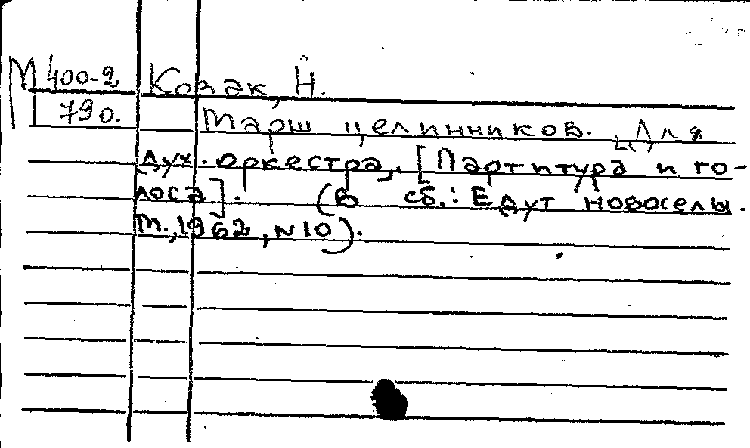 М 400-2 Козак, Н.
790. Марш целинников. [Для
дух. оркестра]. [Партитура и го-
лоса]. (В сб.: Едут новоселы.
М., 1962, №10).